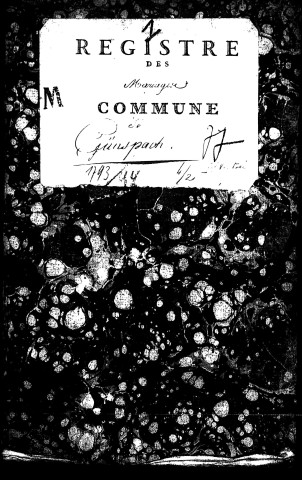 REGISTRE
DES
Mariages
M
COMMUNE
de
Günspach.
1793